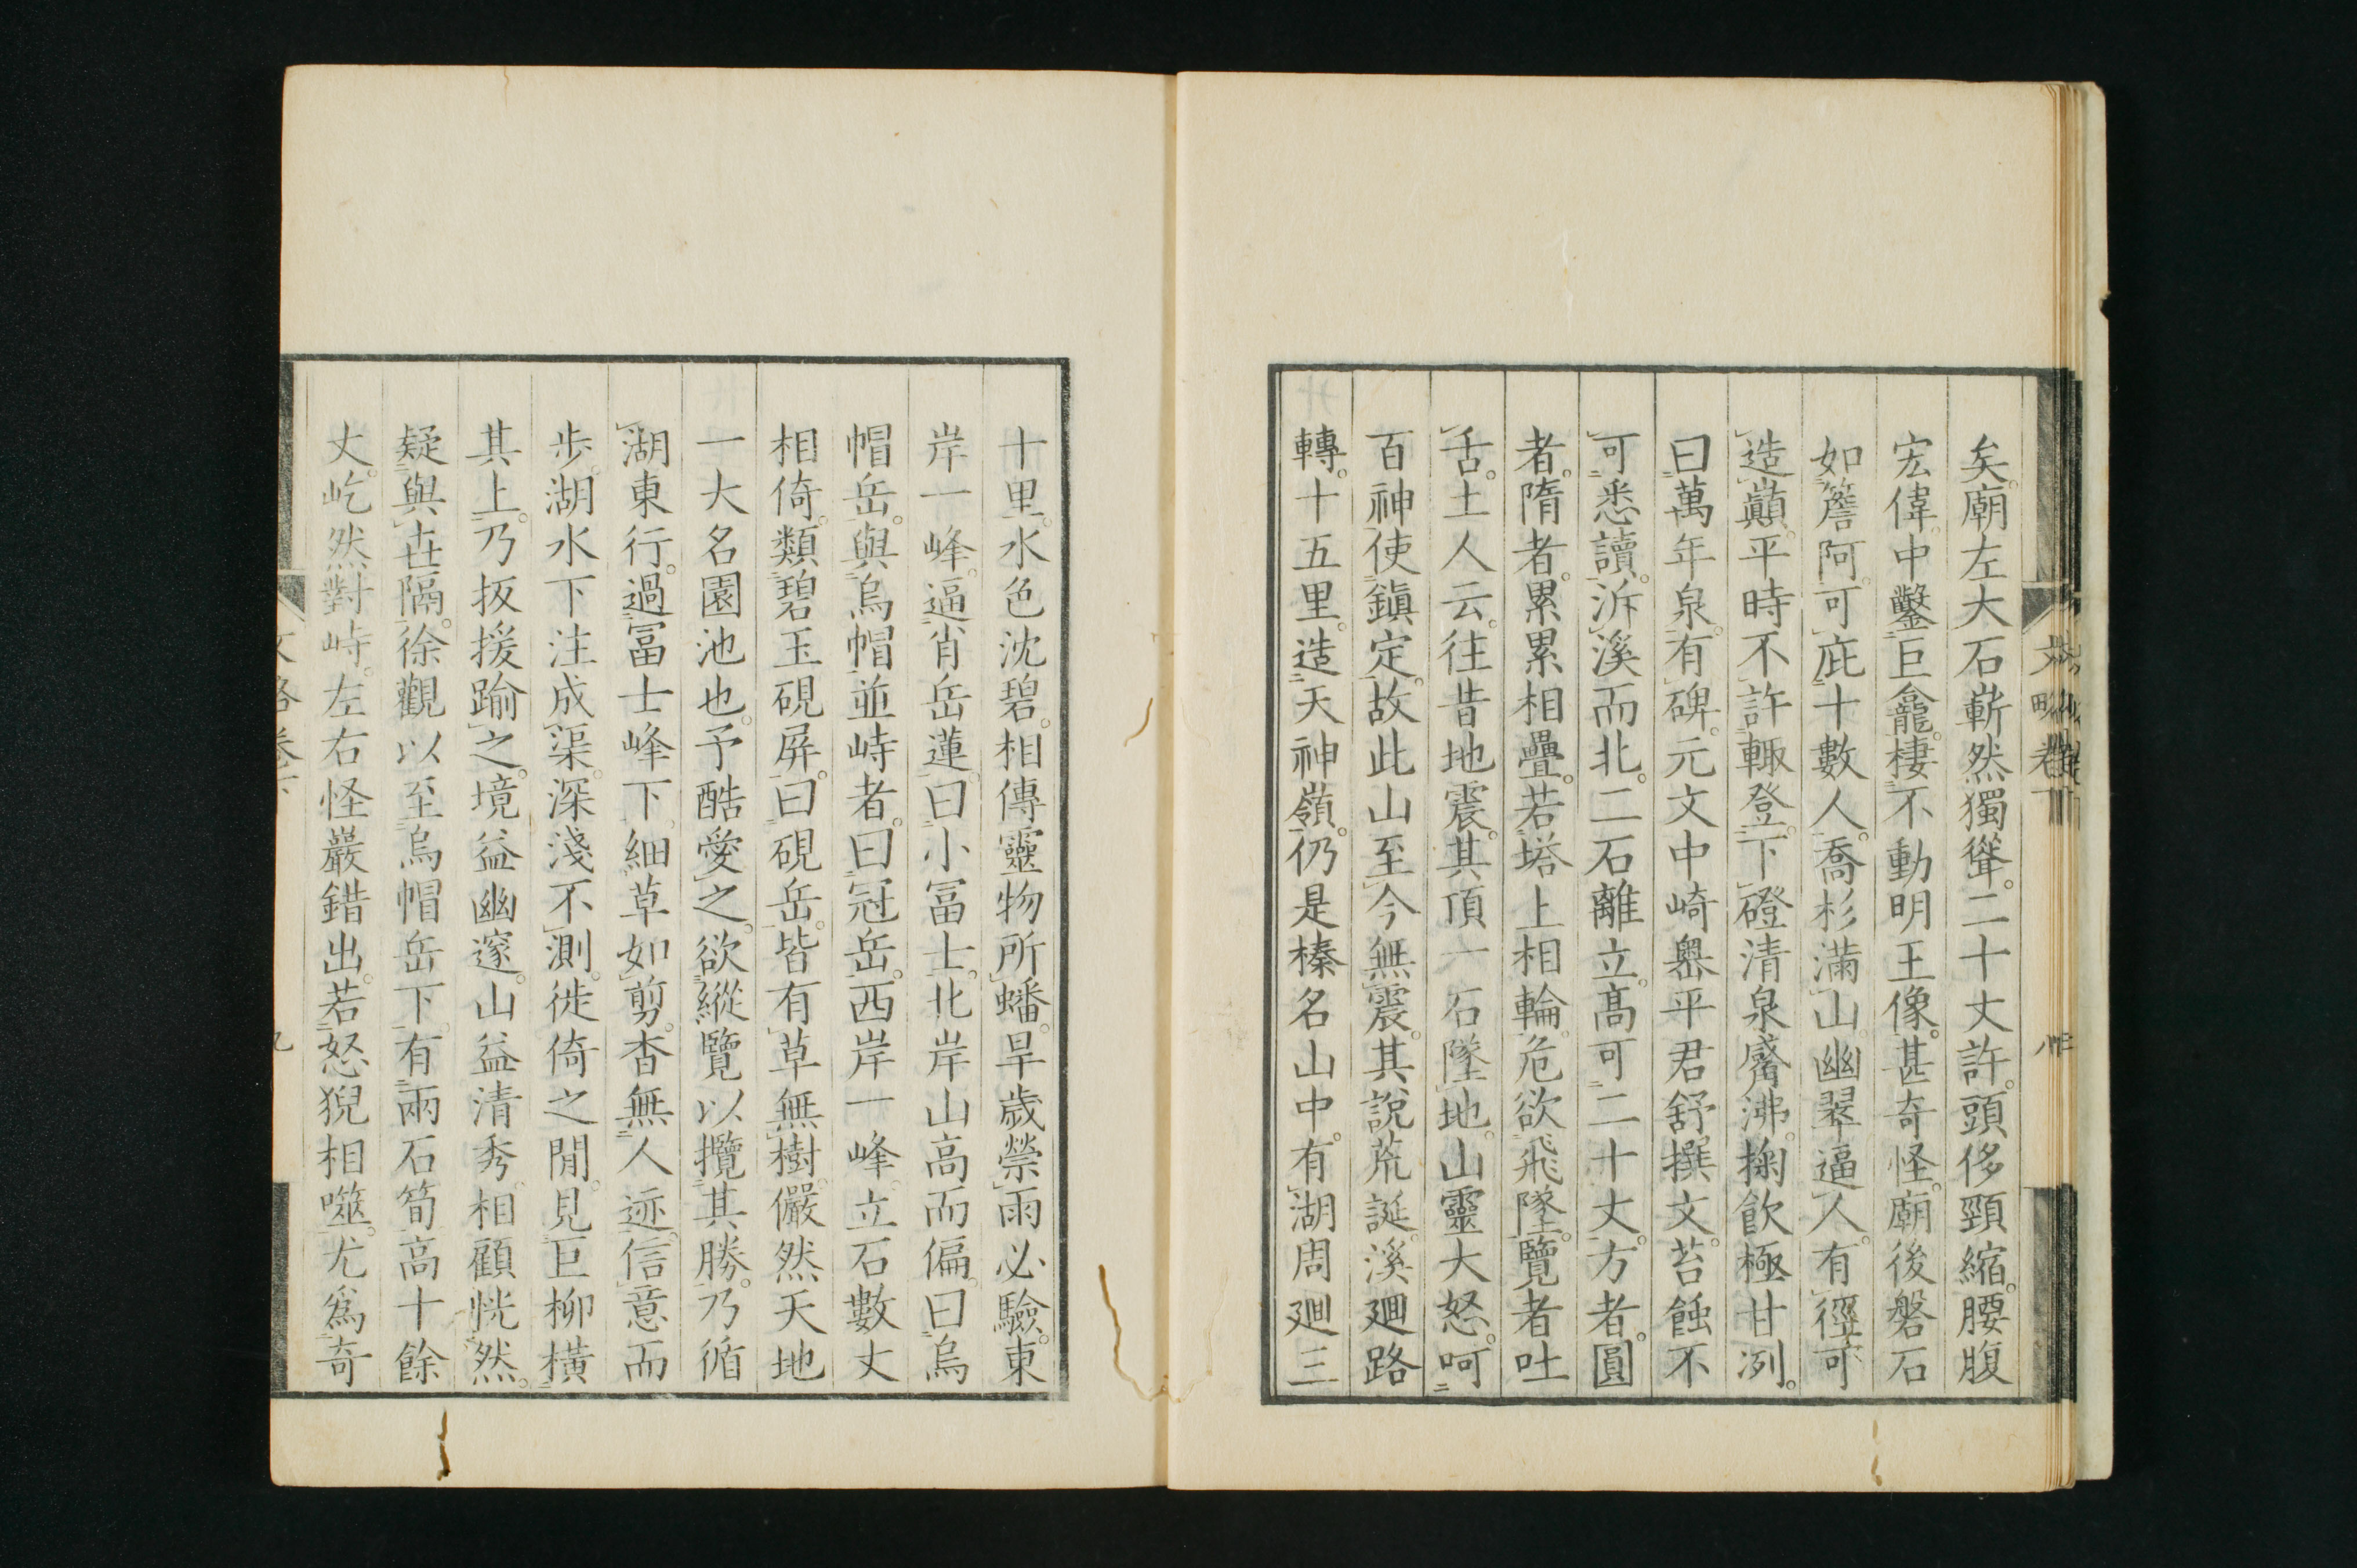 矣。廟左大石嶄然獨聳。二十丈許。頭侈頸縮。腰腹
宏偉。中鑿巨龕。棲不動明王像。甚奇怪。廟後磐石
如簷阿。可庇十數人。喬杉滿山。幽翠逼人。有徑可
造巓。平時不許輙登。下磴清泉觱沸。掬飲極甘冽。
曰萬年泉。有碑。元文中崎嶴平君舒撰文。苔蝕不
可悉讀。泝溪而北。二石離立。高可二十丈。方者。圓
者。隋者。累累相疊。若塔上相輪。危欲飛墜。覽者吐
舌。土人云。往昔地震。其頂一石墜地。山靈大怒。呵
百神使鎭定。故此山至今無震。其說荒誕。溪廻路
轉。十五里。造天神嶺。仍是榛名山中。有湖周廻三
十里。水色沈碧。相傳靈物所蟠。旱歲禜雨必驗。東
岸一峰。逼肖岳蓮。曰小冨士。北岸山高而偏。曰烏
帽岳。與烏帽並峙者。曰冠岳。西岸一峰。立石數丈
相倚。類碧玉硯屏。曰硯岳。皆有草無樹。儼然天地
一大名園池也。予酷愛之。欲縱覽以攬其勝。乃循
湖東行。過冨士峰下。細草如剪。杳無人迹。信意而
步。湖水下注成渠。深淺不測。徙倚之閒。見巨柳橫
其上。乃扳援踰之。境益幽邃。山益清秀。相顧恍然。
疑與世隔。徐觀以至烏帽岳下。有兩石筍高十餘
丈。屹然對峙。左右怪巖錯出。若怒猊相噬。尤爲奇
文略卷下
九